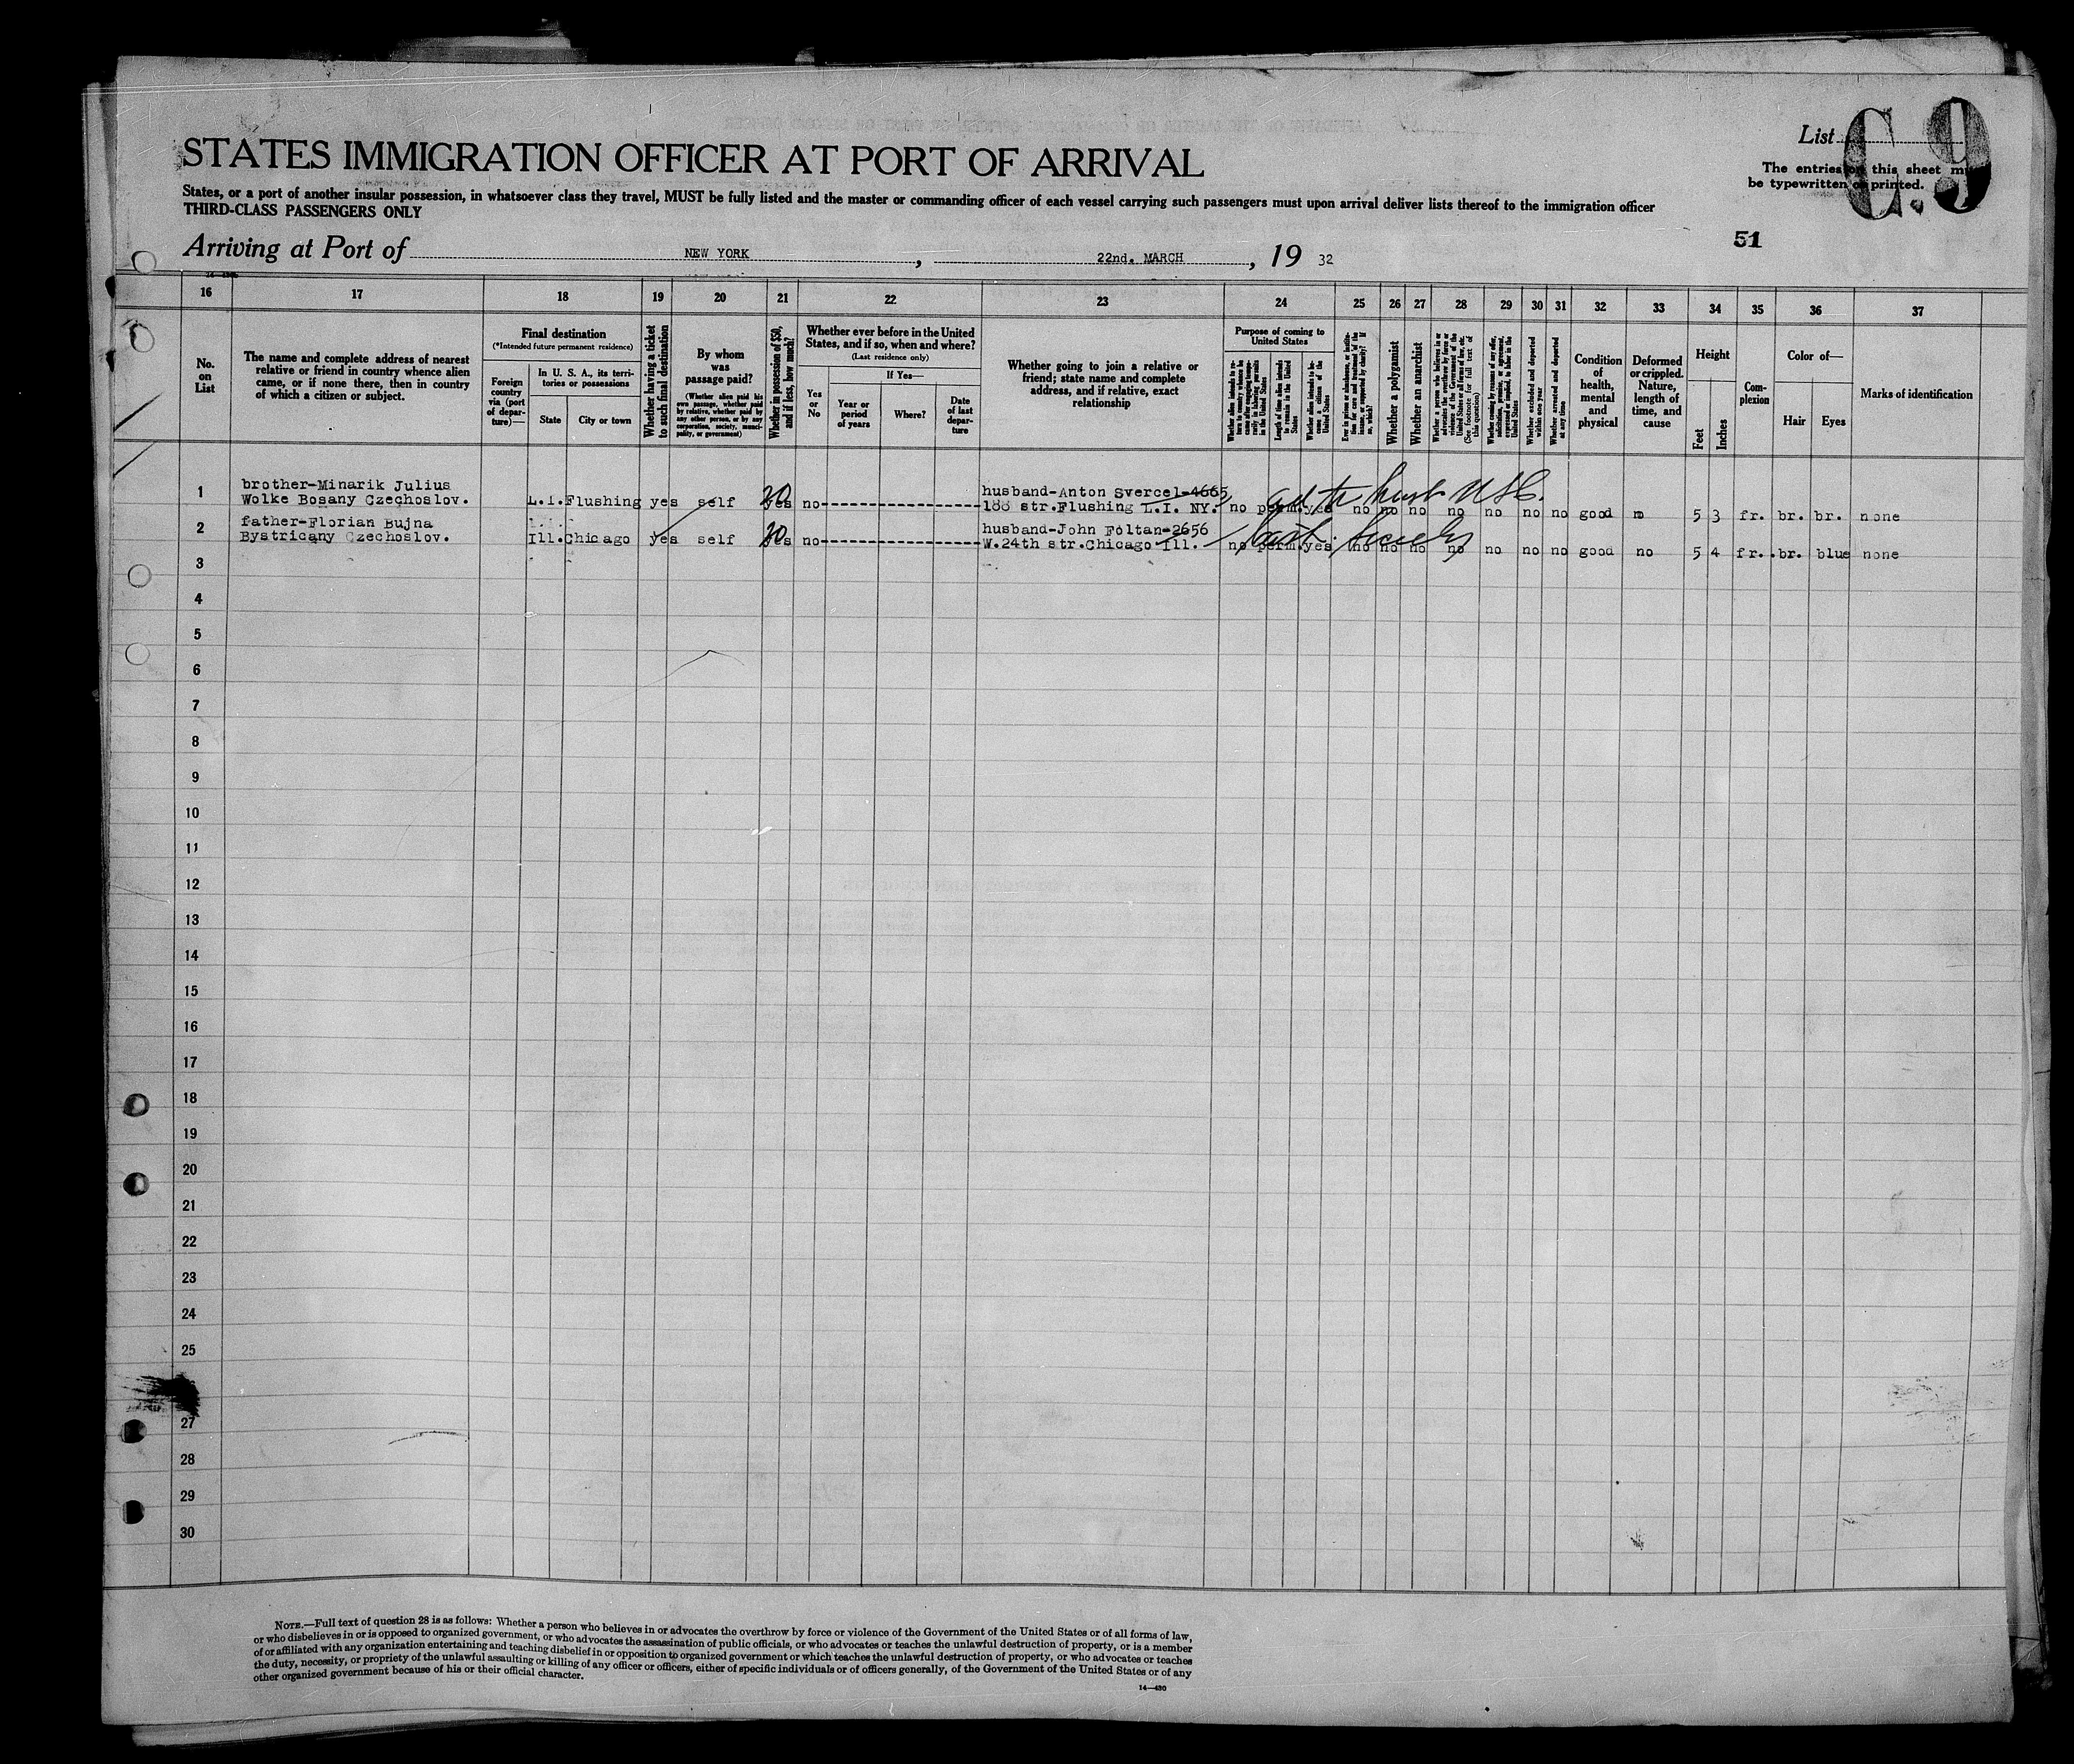 STATES IMMIGRATION OFFICER AT PORT OF ARRIVAL
List
C.9
The entries on this sheet must
be typewritten or printed.
States, or a port of another insular possession, in whatsoever class they travel, MUST be fully listed and the master or commanding officer of each vessel carrying such passengers must upon arrival deliver lists thereof to the immigration officer
THIRD-CLASS PASSENGERS ONLY
51
Arriving at Port of NEW YORK, 22nd. MARCH, 19 32
16 17 18 19 20 21 22 23 24 25 26 27 28 29 30 31 32 33 34 35 36 37
No. on List
The name and complete address of nearest
relative or friend in country whence alien
came, or if none there, then in country
of which a citizen or subject.
Final destination
(*Intended future permanent residence)
Foreign country via (port of departure)—
In U. S. A., its territories or possessions
State
City or town
Whether having a ticket to such final destination
By whom was passage paid?
(Whether alien paid his own passage, whether paid by relative, whether paid by any other person, or by any corporation, society, municipality, or government)
Whether in possession of $50, and if less, how much?
Whether ever before in the United States, and if so, when and where?
(Last residence only)
Yes or No
If Yes—
Year or period of years
Where?
Date of last departure
Whether going to join a relative or
friend; state name and complete
address, and if relative, exact
relationship
Purpose of coming to United States
Length of time alien intends to remain in the United States
Whether alien intends to become a citizen of the United States
Whether a polygamist
Whether an anarchist
(See footnote for full text of this question)
Whether excluded and deported within one year
Whether arrested and deported at any time
Condition of health, mental and physical
Deformed or crippled. Nature, length of time, and cause
Height
Feet
Inches
Complexion
Color of—
Hair
Eyes
Marks of identification
1 brother-Minarik Julius
Wolke Bosany Czechoslov. L.I. Flushing yes self yes 20 no husband-Anton Svercel-4665
188 str.Flushing L.I. NY. no perm. yes no no no no no no no good no 5 3 fr. br. br. none
2 father-Florian Bujna
Bystricany Czechoslov. Ill. Chicago yes self yes 20 no husband-John Foltan-2656
W.24th str.Chicago Ill. no perm. yes no no no no no no no good no 5 4 fr. br. blue none
3
4
5
6
7
8
9
10
11
12
13
14
15
16
17
18
19
20
21
22
23
24
25
27
28
29
30
NOTE.—Full text of question 28 is as follows: Whether a person who believes in or advocates the overthrow by force or violence of the Government of the United States or of all forms of law,
or who disbelieves in or is opposed to organized government, or who advocates the assassination of public officials, or who advocates or teaches the unlawful destruction of property, or is a member
of or affiliated with any organization entertaining and teaching disbelief in or opposition to organized government or which teaches the unlawful destruction of property, or who advocates or teaches
the duty, necessity, or propriety of the unlawful assaulting or killing of any officer or officers, either of specific individuals or of officers generally, of the Government of the United States or of any
other organized government because of his or their official character.
14—430